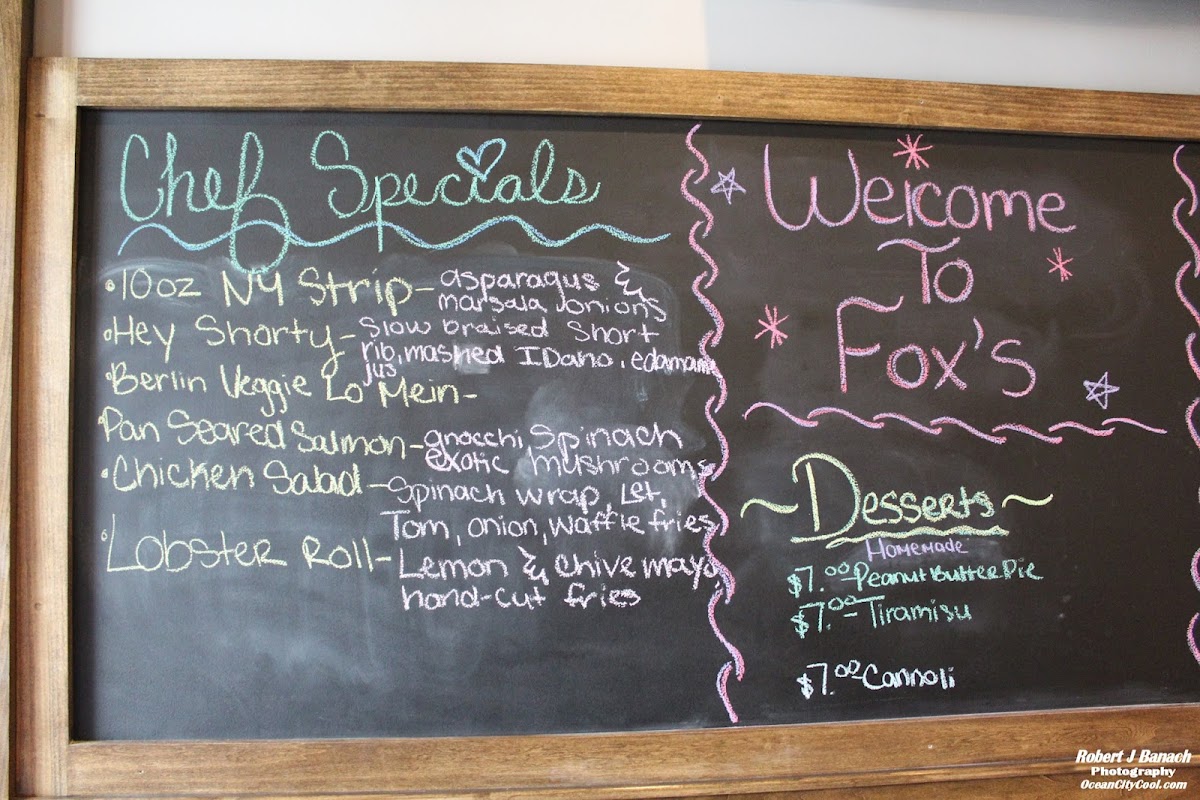 Chef Specials
• 10oz NY Strip - asparagus &
marsala onions
• Hey Shorty - Slow braised Short
rib, mashed IDaho, edamame
jus
• Berlin Veggie Lo Mein -
• Pan Seared Salmon - gnocchi Spinach
exotic mushrooms
• Chicken Salad - Spinach wrap, Let,
Tom, onion, waffle fries
• Lobster Roll - Lemon & chive mayo,
hand-cut fries
Welcome
To
Fox's
~ Desserts ~
Homemade
$7.00 - Peanut Butter Pie
$7.00 - Tiramisu
$7.00 - Cannoli
Robert J Banach
Photography
OceanCityCool.com